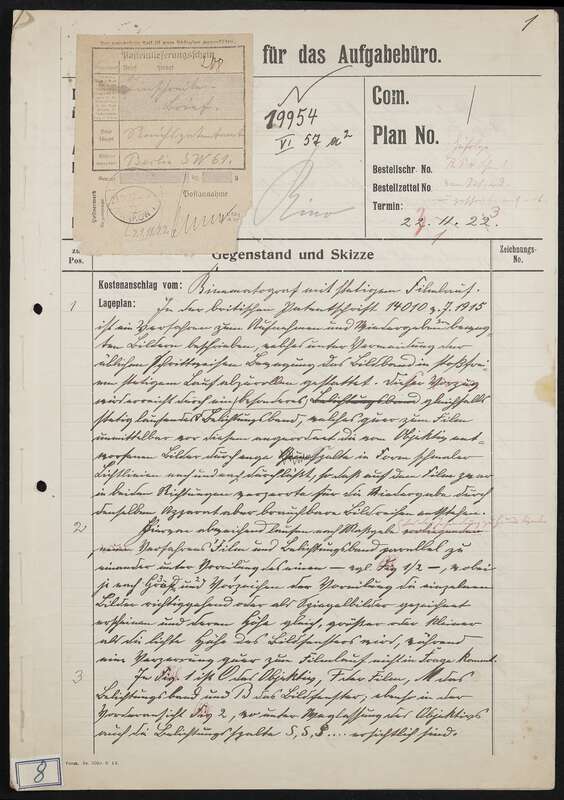 1
für das Aufgabebüro.
Posteinlieferungsschein
Einschreibe-
brief.
Reichspatentamt
Berlin SW 61.
Postannahme
19954
VI 57 a²
Kino
Com.
Plan No.
Bestellschr. No.
Bestellzettel No
Termin:
22. 11. 22
Pos.
Gegenstand und Skizze
Zeichnungs-
No.
Kostenanschlag vom: Kinematograf mit stetigem Filmlauf.
1 Lageplan: In der britischen Patentschrift 14010 v. J. 1915
ist ein Verfahren zum Aufnehmen und Wiedergeben beweg-
ten Bildern beschrieben, welches unter Vermeidung der
üblichen schrittweisen Bewegung das Bildband in stoßfrei-
em stetigem Lauf abzurollen gestattet. Dieser Vorzug
wird erreicht durch ein besonderes Belichtungsband gleichfalls
stetig laufendes Belichtungsband, welches quer zum Film
unmittelbar vor diesem angeordnet die vom Objektiv ent-
worfenen Bilder durch enge Spalte in Form schmaler
Lichtlinien nach und nach durchläßt, so daß auf dem Film zwar
in beiden Richtungen verzerrte für die Wiedergabe durch
denselben Apparat aber brauchbare Bildreihen entstehen.
2 Hiervon abweichend laufen nach Maßgabe
neuen Verfahrens Film und Belichtungsband parallel zu
einander unter Voreilung des einen — vgl. Fig 1/2 —, wobei
je nach Größe und Vorzeichen der Voreilung die einzelnen
Bilder richtiggehend oder als Spiegelbilder gezeichnet
erscheinen und deren Höhe gleich, größer oder kleiner
als die lichte Höhe des Bildfensters wird, während
eine Verzerrung quer zum Filmlauf nicht in Frage kommt.
3 In Fig. 1 ist O das Objektiv, F der Film, M das
Belichtungsband und B das Bildfenster, ebenso in der
Vorderansicht Fig 2, wo unter Weglassung des Objektivs
auch die Belichtungsspalte S, S, S .... ersichtlich sind.
8